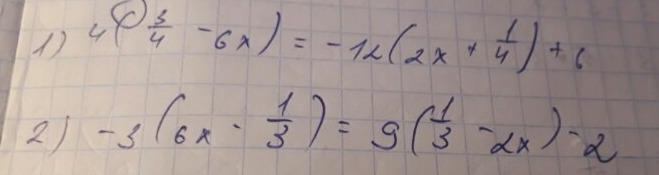 1) 4(3/4 - 6x) = -12(2x + 1/4) + 6
2) -3(6x - 1/3) = 9(1/3 - 2x) - 2